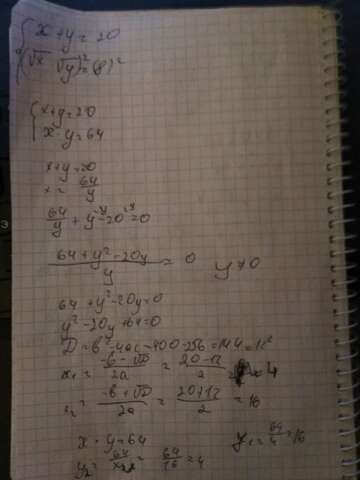 { x + y = 20
(√x √y)² = (8)²
{ x + y = 20
x · y = 64
x + y = 20
x = 64/y
64/y + y - 20 = 0
(64 + y² - 20y)/y = 0 y ≠ 0
64 + y² - 20y = 0
y² - 20y + 64 = 0
D = b² - 4ac = 400 - 256 = 144 = 12²
x₁ = (-b - √D)/2a = (20 - 12)/2 = 4
x₂ = (-b + √D)/2a = (20 + 12)/2 = 16
x · y = 64 y₁ = 64/4 = 16
y₂ = 64/x₂ = 64/16 = 4